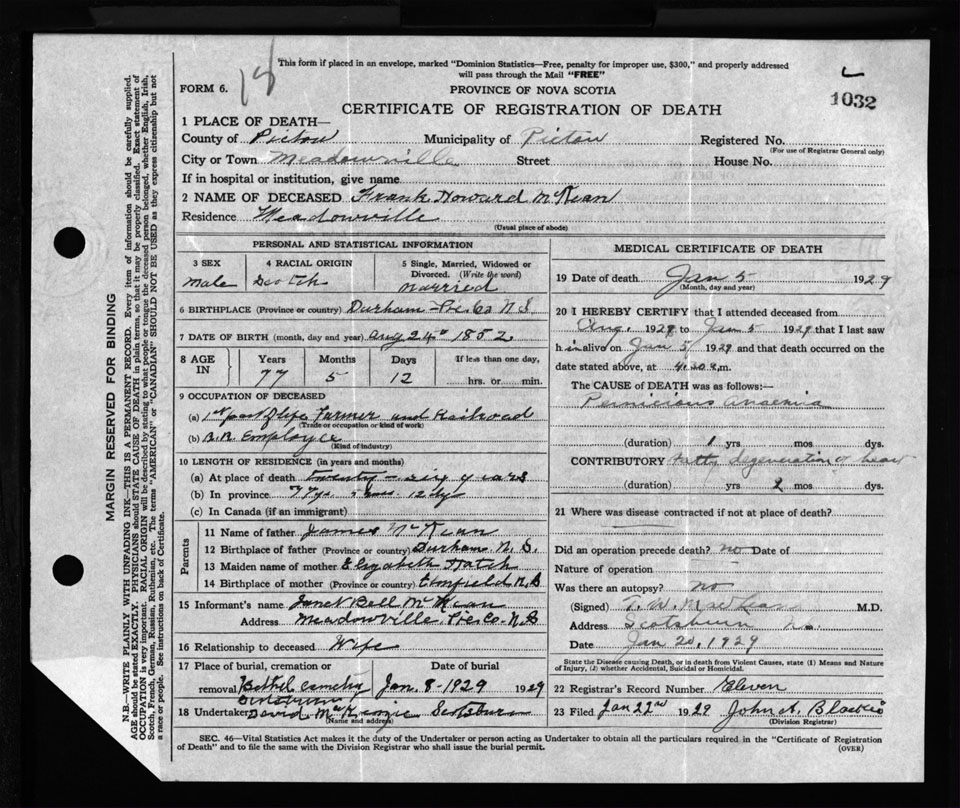 18
This form if placed in an envelope, marked "Dominion Statistics—Free, penalty for improper use, $300," and properly addressed
will pass through the Mail "FREE"
FORM 6.
PROVINCE OF NOVA SCOTIA
1032
CERTIFICATE OF REGISTRATION OF DEATH
1 PLACE OF DEATH—
County of Pictou Municipality of Pictou Registered No.
(For use of Registrar General only)
City or Town Meadowville Street House No.
If in hospital or institution, give name
2 NAME OF DECEASED Frank Howard McKean
Residence Meadowville
(Usual place of abode)
PERSONAL AND STATISTICAL INFORMATION
3 SEX 4 RACIAL ORIGIN 5 Single, Married, Widowed or
Divorced. (Write the word)
Male Scotch Married
6 BIRTHPLACE (Province or country) Durham Pic Co N S
7 DATE OF BIRTH (month, day and year) 24 1852
8 AGE IN Years Months Days If less than one day,
77 5 12 hrs. or min.
9 OCCUPATION OF DECEASED
(a) 1st part of life Farmer and Railroad
(Trade or occupation or kind of work)
(b) R.R. Employee
(Kind of industry)
10 LENGTH OF RESIDENCE (in years and months)
(a) At place of death twenty-six years
(b) In province 77 ys. 5 mos 12 dys
(c) In Canada (if an immigrant)
Parents
11 Name of father James McKean
12 Birthplace of father (Province or country) Durham N. S.
13 Maiden name of mother Elizabeth
14 Birthplace of mother (Province or country) Elmfield N.S
15 Informant's name Janet Bell McKean
Address Meadowville Pic Co. N.S
16 Relationship to deceased Wife
17 Place of burial, cremation or Date of burial
removal Bethel cemetery Jan. 8-1929 1929
Scotsburn
18 Undertaker David McKenzie Scotsburn
(Name and address)
MEDICAL CERTIFICATE OF DEATH
19 Date of death Jan 5 1929
(Month, day and year)
20 I HEREBY CERTIFY that I attended deceased from
Aug. 1928 to Jan 5 1929 that I last saw
h im alive on Jan 5 1929 and that death occurred on the
date stated above, at 4.20 m.
The CAUSE of DEATH was as follows:—
Pernicious anaemia
(duration) 1 yrs mos dys.
CONTRIBUTORY Fatty degeneration of heart
(duration) yrs 2 mos dys.
21 Where was disease contracted if not at place of death?
Did an operation precede death? no Date of
Nature of operation
Was there an autopsy? no
(Signed) T. W. M.D.
Address Scotsburn N.S.
Date Jan 20, 1929
State the Disease causing Death, or in death from Violent Causes, state (1) Means and Nature
of Injury, (2) whether Accidental, Suicidal or Homicidal.
22 Registrar's Record Number Eleven
23 Filed Jan 22nd 1929 John A. Blaikie
(Division Registrar)
SEC. 46—Vital Statistics Act makes it the duty of the Undertaker or person acting as Undertaker to obtain all the particulars required in the "Certificate of Registration
of Death" and to file the same with the Division Registrar who shall issue the burial permit.
(OVER)
MARGIN RESERVED FOR BINDING
N.B.—WRITE PLAINLY WITH UNFADING INK—THIS IS A PERMANENT RECORD. Every item of information should be carefully supplied.
AGE should be stated EXACTLY. PHYSICIANS should STATE CAUSE OF DEATH in plain terms, so that it may be properly classified. Exact statement of
OCCUPATION is very important. RACIAL ORIGIN will be described by stating to what people or tongue the deceased person belonged, whether English, Irish,
Scotch, French, German, Russian, Ruthenian, etc. The terms "AMERICAN" or "CANADIAN" SHOULD NOT BE USED as they express citizenship but not
a race or people. See instructions on back of Certificate.